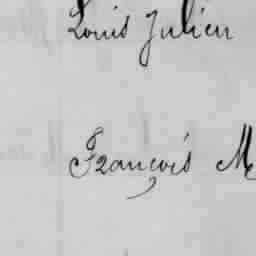 Louis Julien
François M